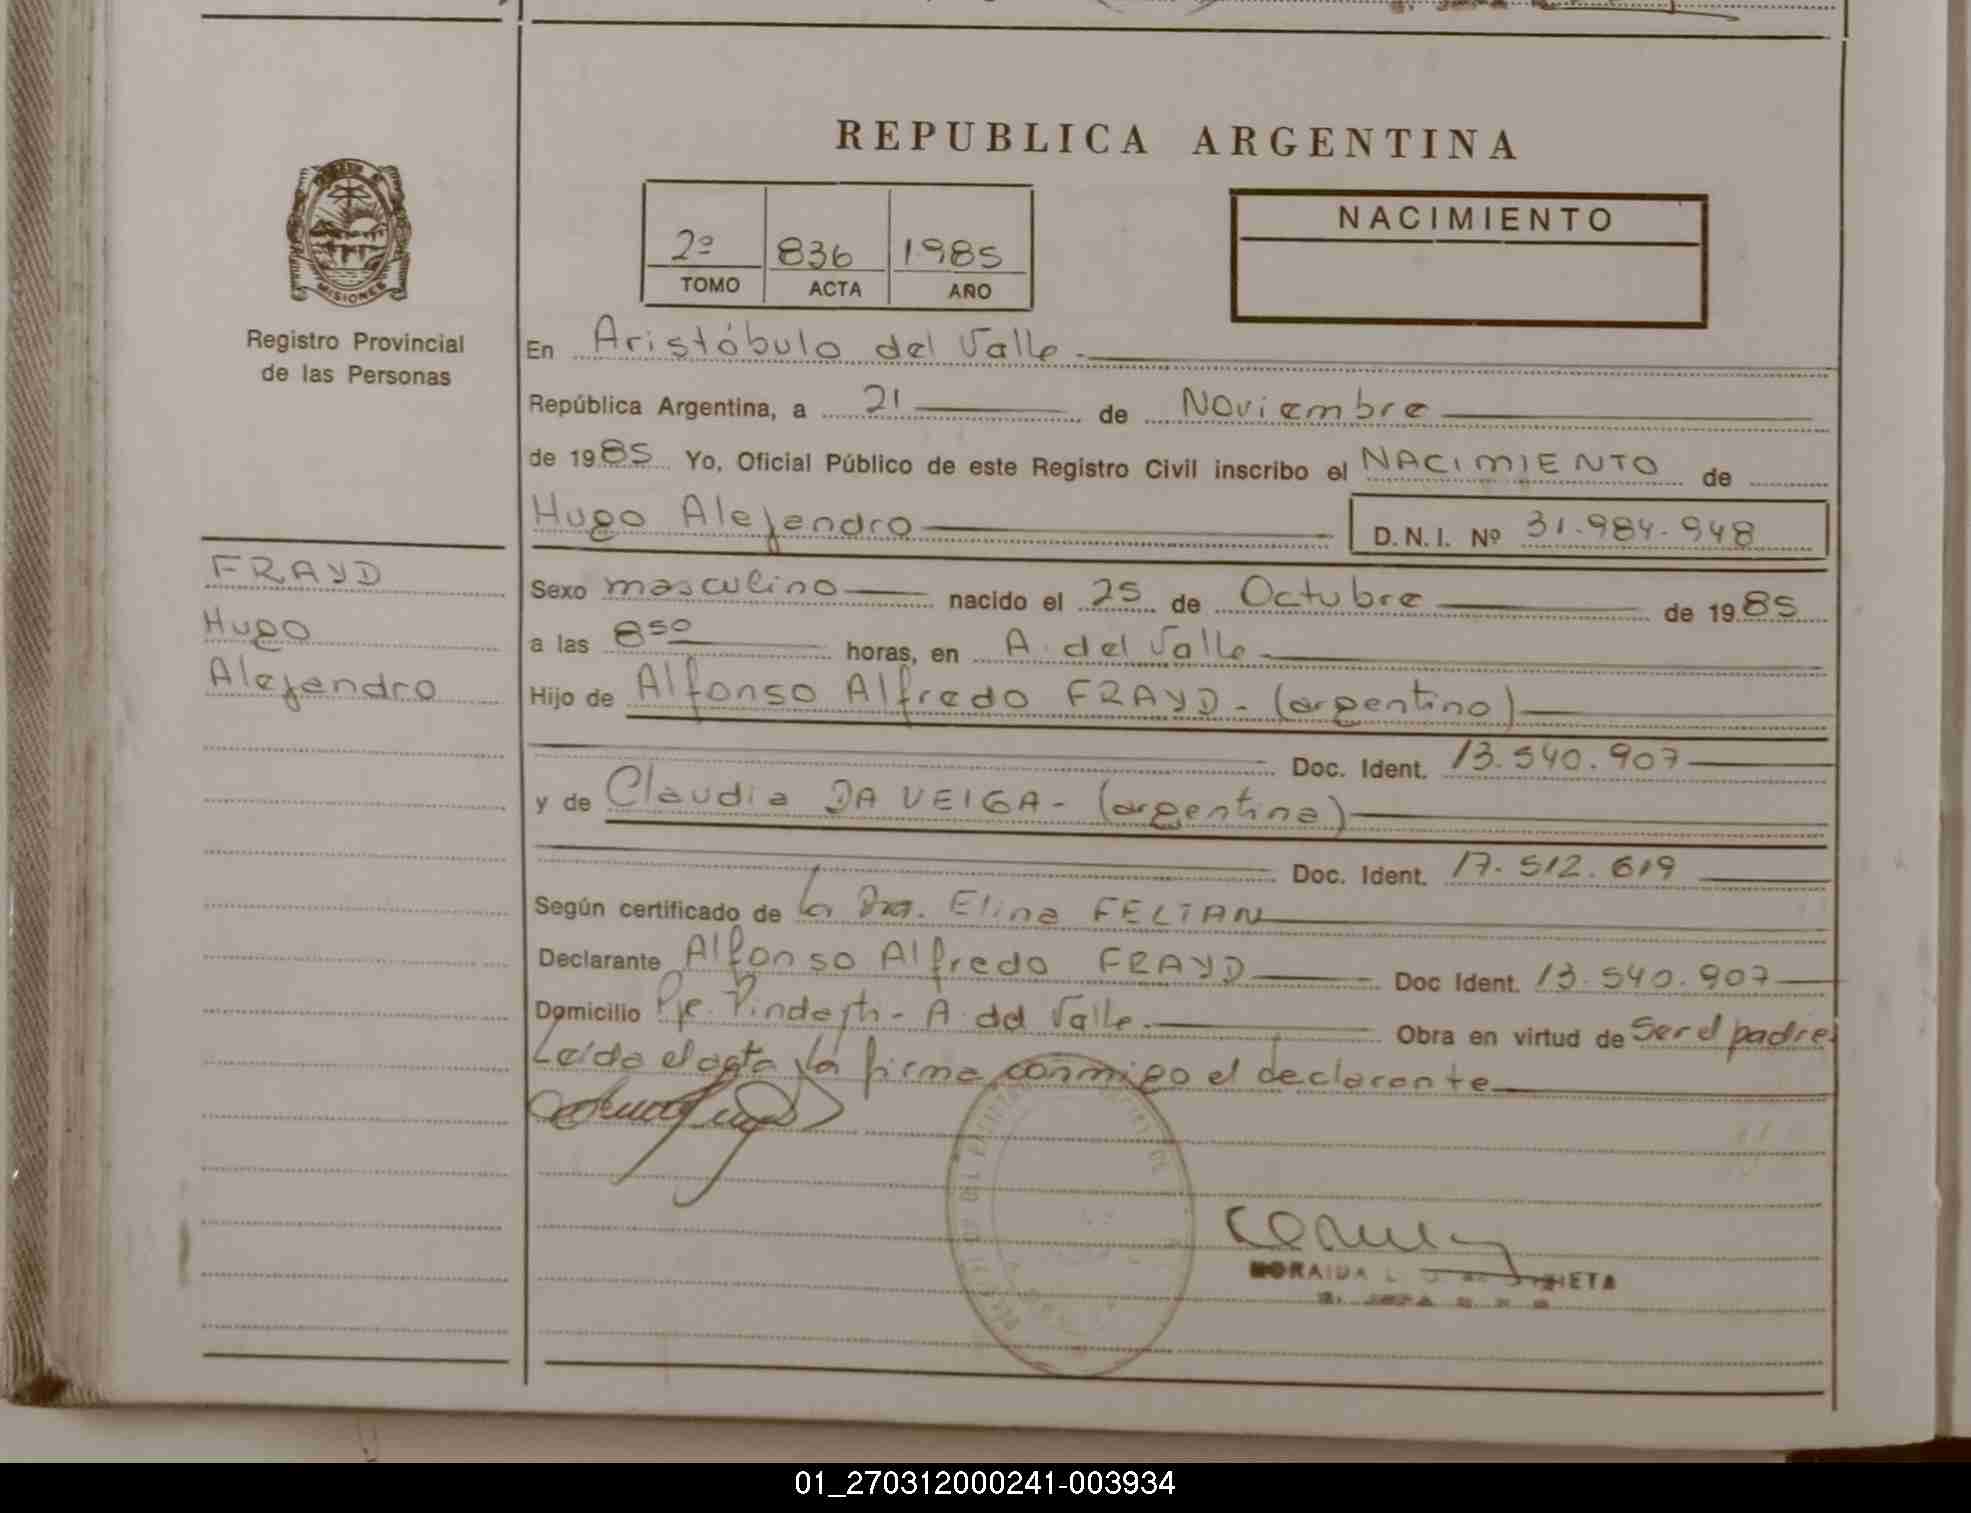 REPUBLICA ARGENTINA
MISIONES
Registro Provincial
de las Personas
2º 836 1985
TOMO ACTA AÑO
NACIMIENTO
En Aristóbulo del Valle.
República Argentina, a 21 de Noviembre
de 1985 Yo, Oficial Público de este Registro Civil inscribo el NACIMIENTO de
Hugo Alejandro D.N.I. Nº 31.984.948
FRAYD
Hugo
Alejandro
Sexo masculino nacido el 25 de Octubre de 1985
a las 8 50 horas, en A. del Valle
Hijo de Alfonso Alfredo FRAYD - (argentino)
Doc. Ident. 13.540.907
y de Claudia DA VEIGA - (argentina)
Doc. Ident. 17.512.619
Según certificado de la Dra. Elina FELTAN
Declarante Alfonso Alfredo FRAYD Doc Ident. 13.540.907
Domicilio Pje. - A. del Valle. Obra en virtud de Ser el padre
Leída el acta, la firma conmigo el declarante
01_270312000241-003934